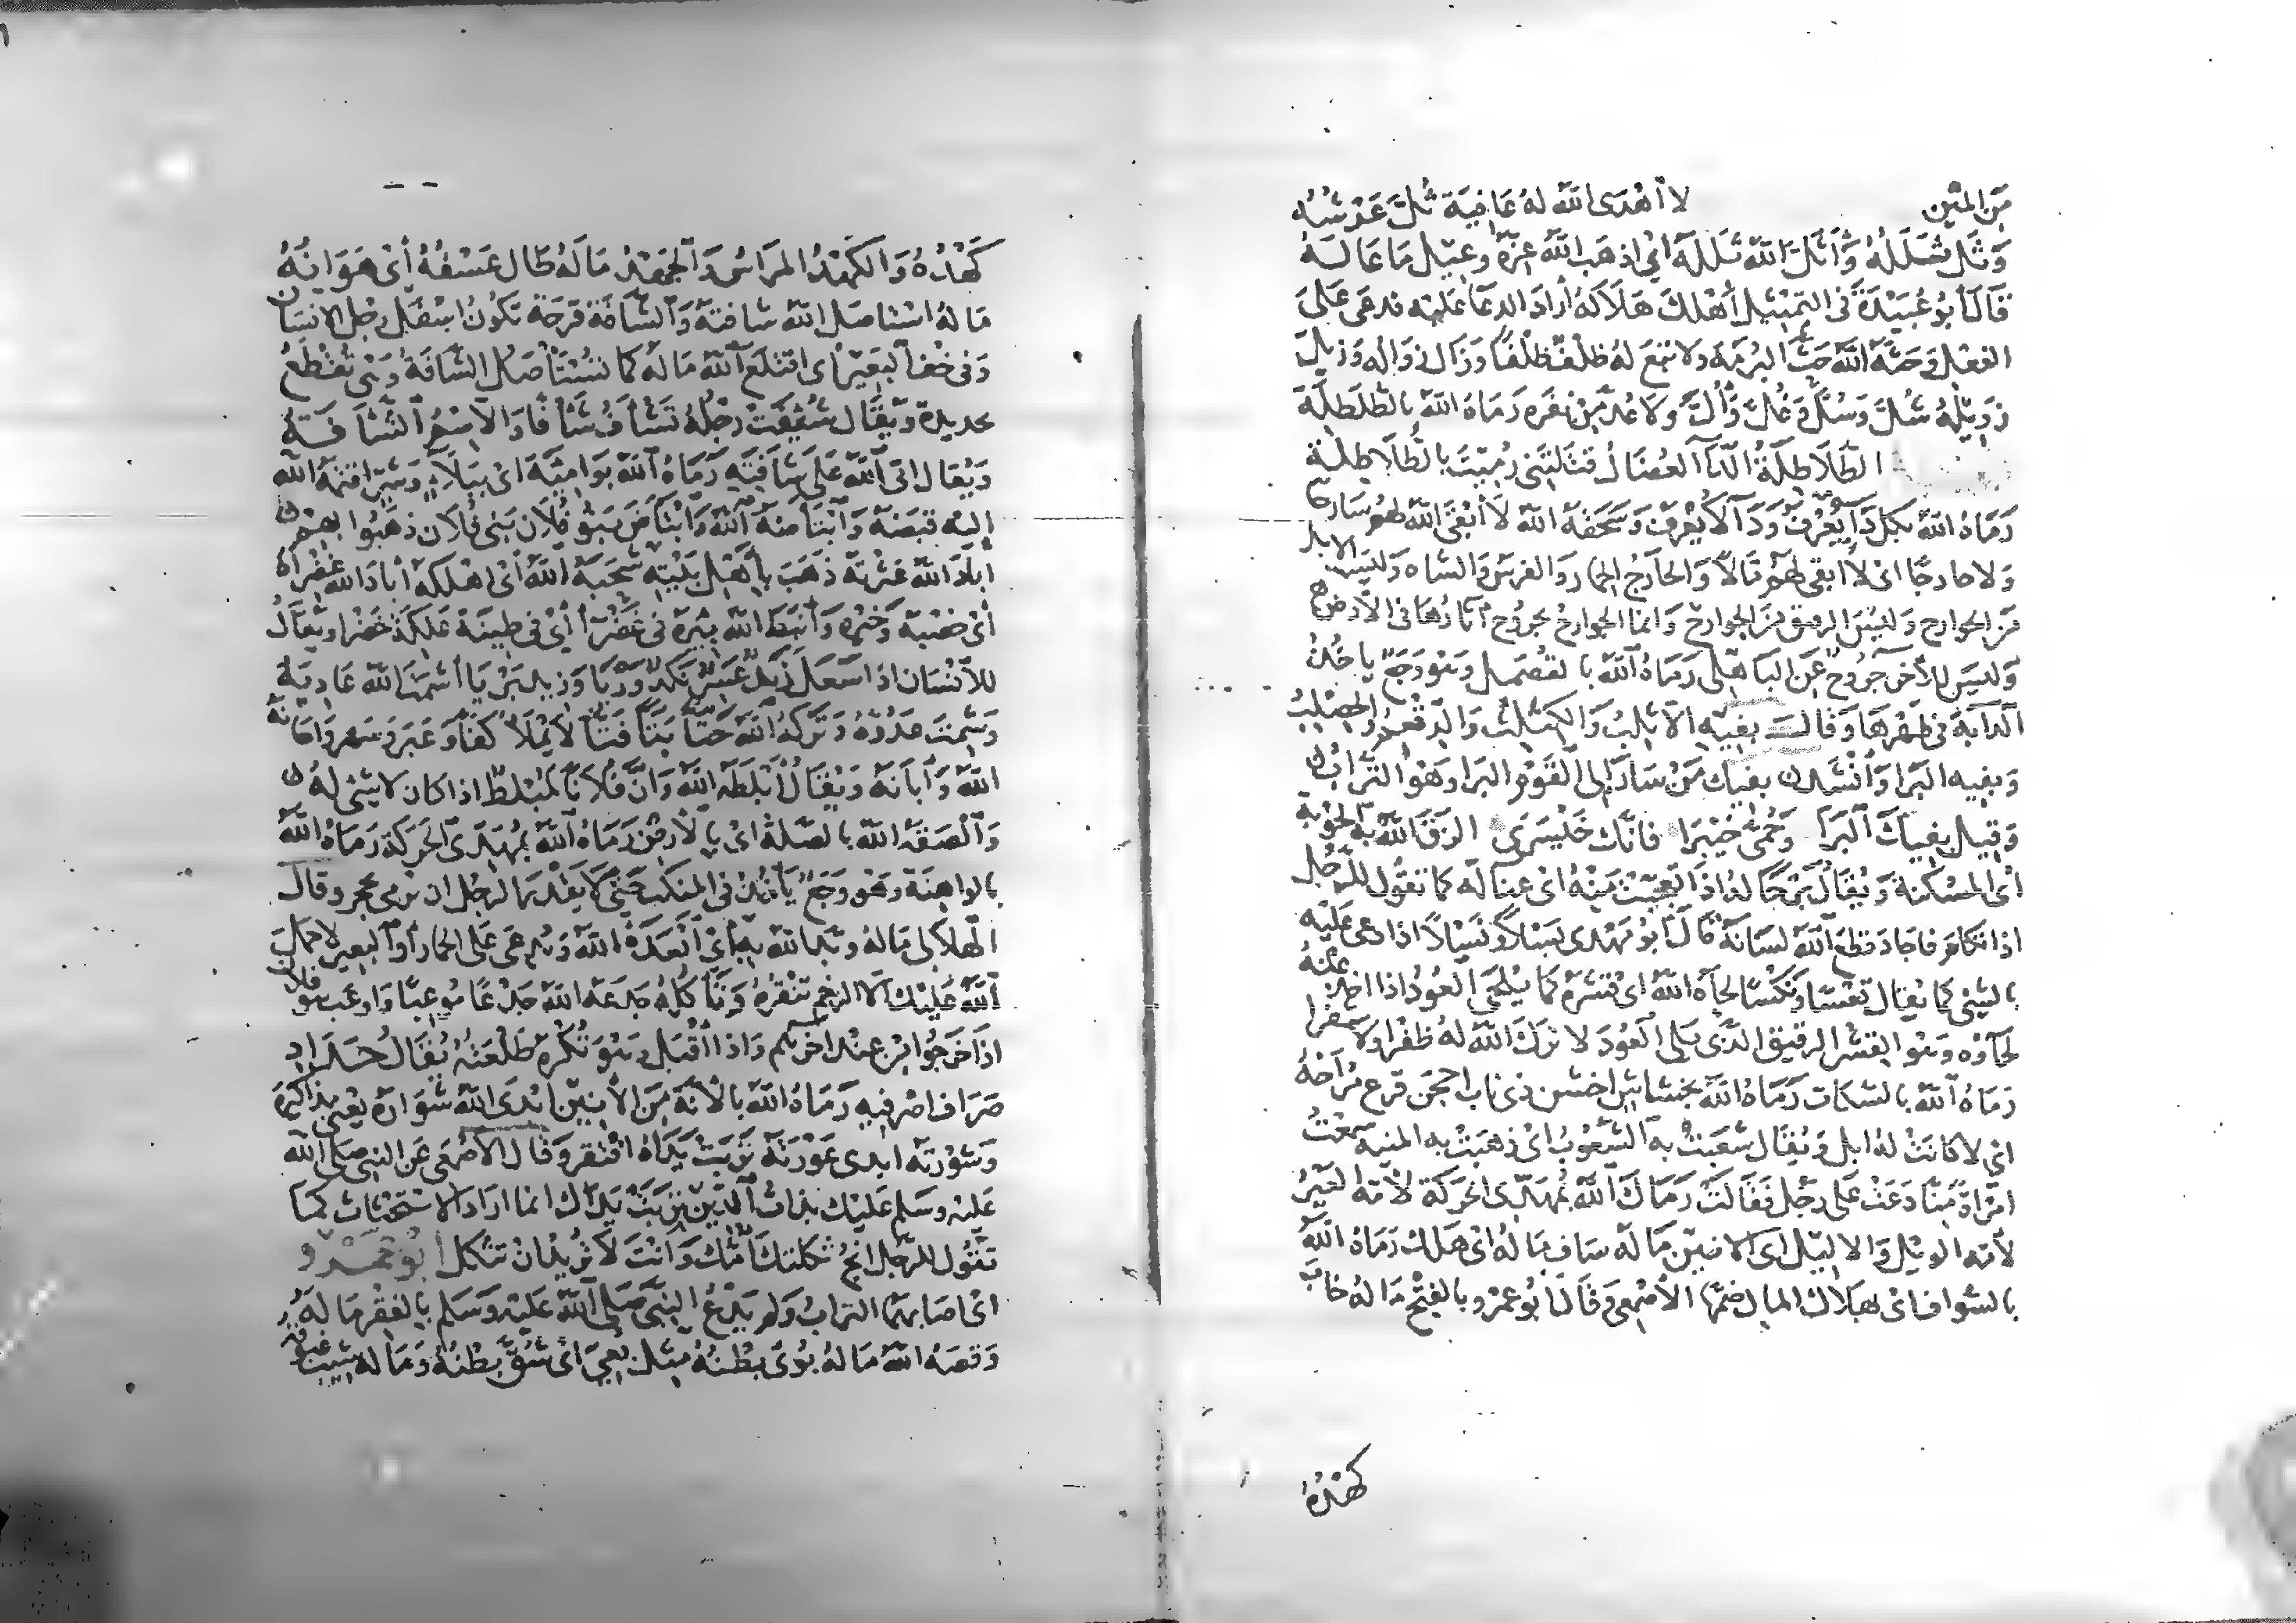 مَنِ المَتِين لا أَهْدَى اللهُ لهُ عَافِيَة ثُلَّ عَرْشُهُ
وَثَلَّ ثَلَلُهُ وَأَثَلَّ اللهُ ثَلَلَهُ أَيْ اذهَبَ اللهُ عِزَّهُ وعِيْلَ مَا عَالَهُ
قَالَ أبُو عُبَيْدَةَ فى التمثيل أُهْلكَ هَلاَكُهُ أرادَ الدعَا عَليْه فدعى عَلَى
الفعْل وَحَتَّهُ اللهُ حَتَّ البُرمَة ولا تبَعَ لهُ ظلْفٌ ظلْفًا وَزَال زوَالُه وَزِيلَ
زوِيْلُهُ شُلَّ وَسُلَّ وَغُلَّ وَأُلَّ وَلا عُدَّ مِنْ نفَرِه رَمَاهُ اللهُ بالطُّلَطِلَة
الطُّلَاطِلَةُ الدَّآ العُضَالُ قتَلتَنِي رُمِيْتَ بالطُّلَاطِلة
رَمَاهُ اللهُ بكلّ دَآءٍ يُعْرَفُ وَدَآءٍ لَا يُعْرَفُ وَسَحَفَهُ اللهُ لَا أَبْقَى اللهُ لهُمْ سَارحًا
وَلا جارحًا اىْ لاَ أبْقى لهُمْ مَالاً وَالجَارحُ الحمار وَالفرسُ وَالشاه وَليْسَت الابل
مِنَ الجوارح وَليْسَ الرقيق مِنَ الجَوَارح وَانما الجوارحُ جُروُح آثارُهَا فى الأرض
وَليسَ للأُخَر جرُوح عَن البَاهلى رَمَاهُ اللهُ بالقُصْمل وَهْوَ وَجَعٌ ياخُذُ
الدَآبَة فى ظهْرهَا وَقالَ بفيِهِ الأَثْلَبُ وَالكَثْكَثُ وَالدِّقْعِمُ والحِصْلِبُ
وَبفِيهِ البَرَا وَأنْشَدَ بفيْكَ مَنْ سَارَ إلى القَوْم البَرَا وَهْوَ التُّرَابُ
وَقِيلَ بفِيكَ البَرَا وَحُمَّى خَيْبَرَا فانَّكَ خَيْسَرَى الزَقَ اللهُ بهِ الحَوْبَة
أَىْ المسْكَنَة وَيُقَالُ بَرْحًا لهُ اذَا تعَجّبْتَ مِنْهُ اىْ عنآ لَه كما تقُول للرَّجُل
اذا تكلم فاجادَ قطَعَ اللهُ لسَانهُ قالَ أبُو مَهْدى بَسْلاً وَنَسْلاً اذا دعى عَليْه
بالشىْ كما يُقَال تَعْسًا وَنَكْسًا لحَآهُ اللهُ اى قشَرَهُ كما يُلْحَى العُودُ اذا اخذ عَنْهُ
لحآوه وهْو القشر الرقيق الذى يَلى العُودَ لا تركَ اللهُ لهُ ظفْرًا ولا شُفْرا
رَمَاهُ اللهُ بالسُّكات رَمَاهُ اللهُ بخشَاشٍ اخشن ذى ناب احجن قرع مُراحُهُ
اىْ لا كانتْ لهُ ابل وَيُقَال شعَبَتْ به الشّعُوبُ اىْ ذهبَتْ به المنيه سَمِعْتُ
امْرَأةً مِنّا دَعَتْ عَلى رجُل فَقَالَتْ رَمَاكَ اللهُ بمُهَدّى الحَرَكَةَ لأُمّه العَبْرُ
لأُمّه الويْل وَالاَلِيْل اى الانيْن مَا لَه سَافَ مَا لُه اىْ هلَكَ رَمَاهُ اللهُ
بالسُّوَاف اىْ بهَلاك المال ضمَّهَا الأصْمعى وَقَالَ أبُو عمْرو بالفَتْح مَا لهُ خابَ
كهْدُهُ
كَهْدُهُ وَالكَهْدُ المرَاسُ وَالجَهْدُ مَا لَهُ طَال عَسْفُهُ أَىْ هَوَانُهُ
مَا لهُ اسْتأصَلَ اللهُ شأفتهُ وَالشأفَةُ قرحَة تكُونُ اسْفَل رجْل الانسَان
وَفى خُفّ البَعِيْر اى اقتلَعَ اللهُ مَا لَه كما تسْتَأْصَلُ الشأفَةُ وَهْىَ تُقْطَعُ
بحديدة وَيُقَال شَئِفَتْ رجْلُهُ تَشْأَفُ شأَفًا وَالاسْمُ الشَّأفَةُ
وَيُقَال اتى اللهُ عَلى شأْفَتِه رَمَاهُ اللهُ بوَامِئةٍ اىْ ببَلاَءٍ وَشَرٍّ اقتمّهُ اللهُ
إليْه قبَضَهُ وَابْتَاضَهُ اللهُ وَابْتاضَ بَنُو فُلان بَنى فُلان ذهَبُوا بهمْ
ابادَ اللهُ عَتْرَتهُ ذهَبَ بأَهْل بَيْتِه شَحَبَهُ اللهُ اىْ اهْلكَهُ أبادَ اللهُ غَضْرَاهُ
أىْ خصْبَهُ وَخيْرهُ وَأنبَطَ اللهُ بئرَهُ فى غَضْرَآءَ أىْ فى طِيْنَة عَلِكَة خَضْرا وَيُقَالُ
للانْسَان اذا سَعَلَ عُسْرٌ نكَدٌ وَرْيًا وَزيدَ بَرْيًا أشمَتَ اللهُ عَادِيَهُ
وَشَمِتَ عَدُوّهُ وَتَرَكهُ اللهُ حَتًّا بَتًّا فَتًّا لاَ يَمْلاُ كفًّا وَعَبِرَ وَسَهِر وَاحَانَهُ
اللهُ وَأبَانَهُ وَيُقَالُ أبْلَطَهُ اللهُ وَانَّ فُلاَنًا لمُبْلَطٌ اذا كان لا شىْ لهُ
وَألْصَقَهُ اللهُ بالصّلة اىْ بالأرض رَمَاهُ اللهُ بمُهَدّى الحَرَكة رَمَاهُ اللهُ
بالواهنَة وَهْوَ وَجَعٌ يَأخُذُ فى المنكب حَتّى لاَ يَقْدرَ الرجُل ان يرْمى بحجر وَقالَ
الهلاَلى مَا لهُ وَبَدَا لله به اىْ أبْعَدَهُ اللهُ وَيُدعى عَلى الحمار أو البَعير لا حَمَلَ
اللهُ عَليْكَ الا الرَخم تنْقُرُهُ وَتَأكُلُهُ جدَعَهُ اللهُ جَدْعًا مُوعبًا وَاوعَبَ بنو فلان
اذا خَرَجُوا مِنْ عِنْد اخِرهم وَاذا اقْبَل وَهْوَ تُكْرَهُ طَلْعَتُهُ يُقَالُ حَدَادِ
صَرَافِ اصْرفيه رَمَاهُ اللهُ بالأُنّةَ مِنَ الأَنِيْن ابْدَى اللهُ شَوَارَهُ يعْنى مذاكيرَهُ
وَشَوّرَتهُ ابدى عَوْرَتَهُ تَرِبَتْ يَدَاهُ افْتقر وَقالَ الأصْمَعى عَن النبى صَلى اللهُ
عَليْه وسَلم عَليْكَ بذات الدّيْن تَرِبَتْ يَدَاكَ انما ارادَ الاسْتحْثَاث كمَا
تقُول للرَّجُل انجُ ثكلتكَ أُمُّكَ وَأنْتَ لاَ تُريْدُ انْ تثْكل أَبُو عَمْرو
اىْ اصَابهُمَا الترابُ وَلم يَدْعُ النبىُّ صَلى اللهُ عَليْه وَسَلم بالفقْر مَا لَهُ
وَقصَمَهُ اللهُ مَا لهُ بُوىَ بطْنُهُ مِثْل بُعِىَ اىْ شُقَّ بطْنُهُ وَمَا لَه شِيبَ غبُوقُهُ